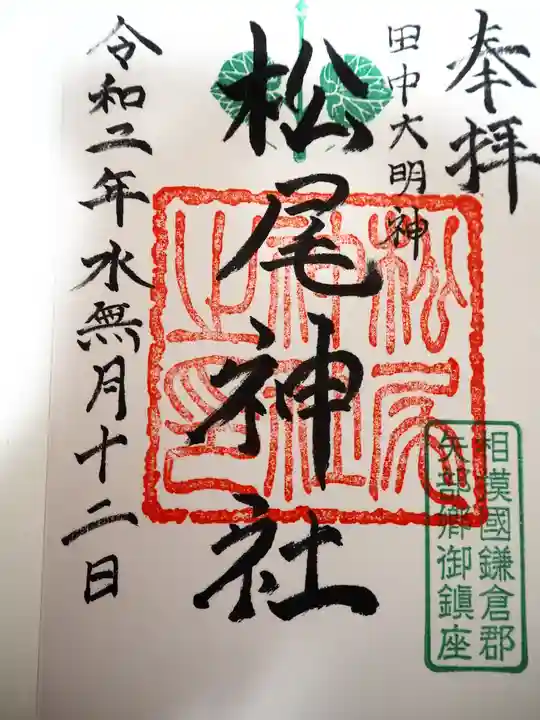 奉拝
田中大明神
松尾神社
松尾神社之印
令和二年水無月十二日
相模國鎌倉郡
矢部郷御鎮座